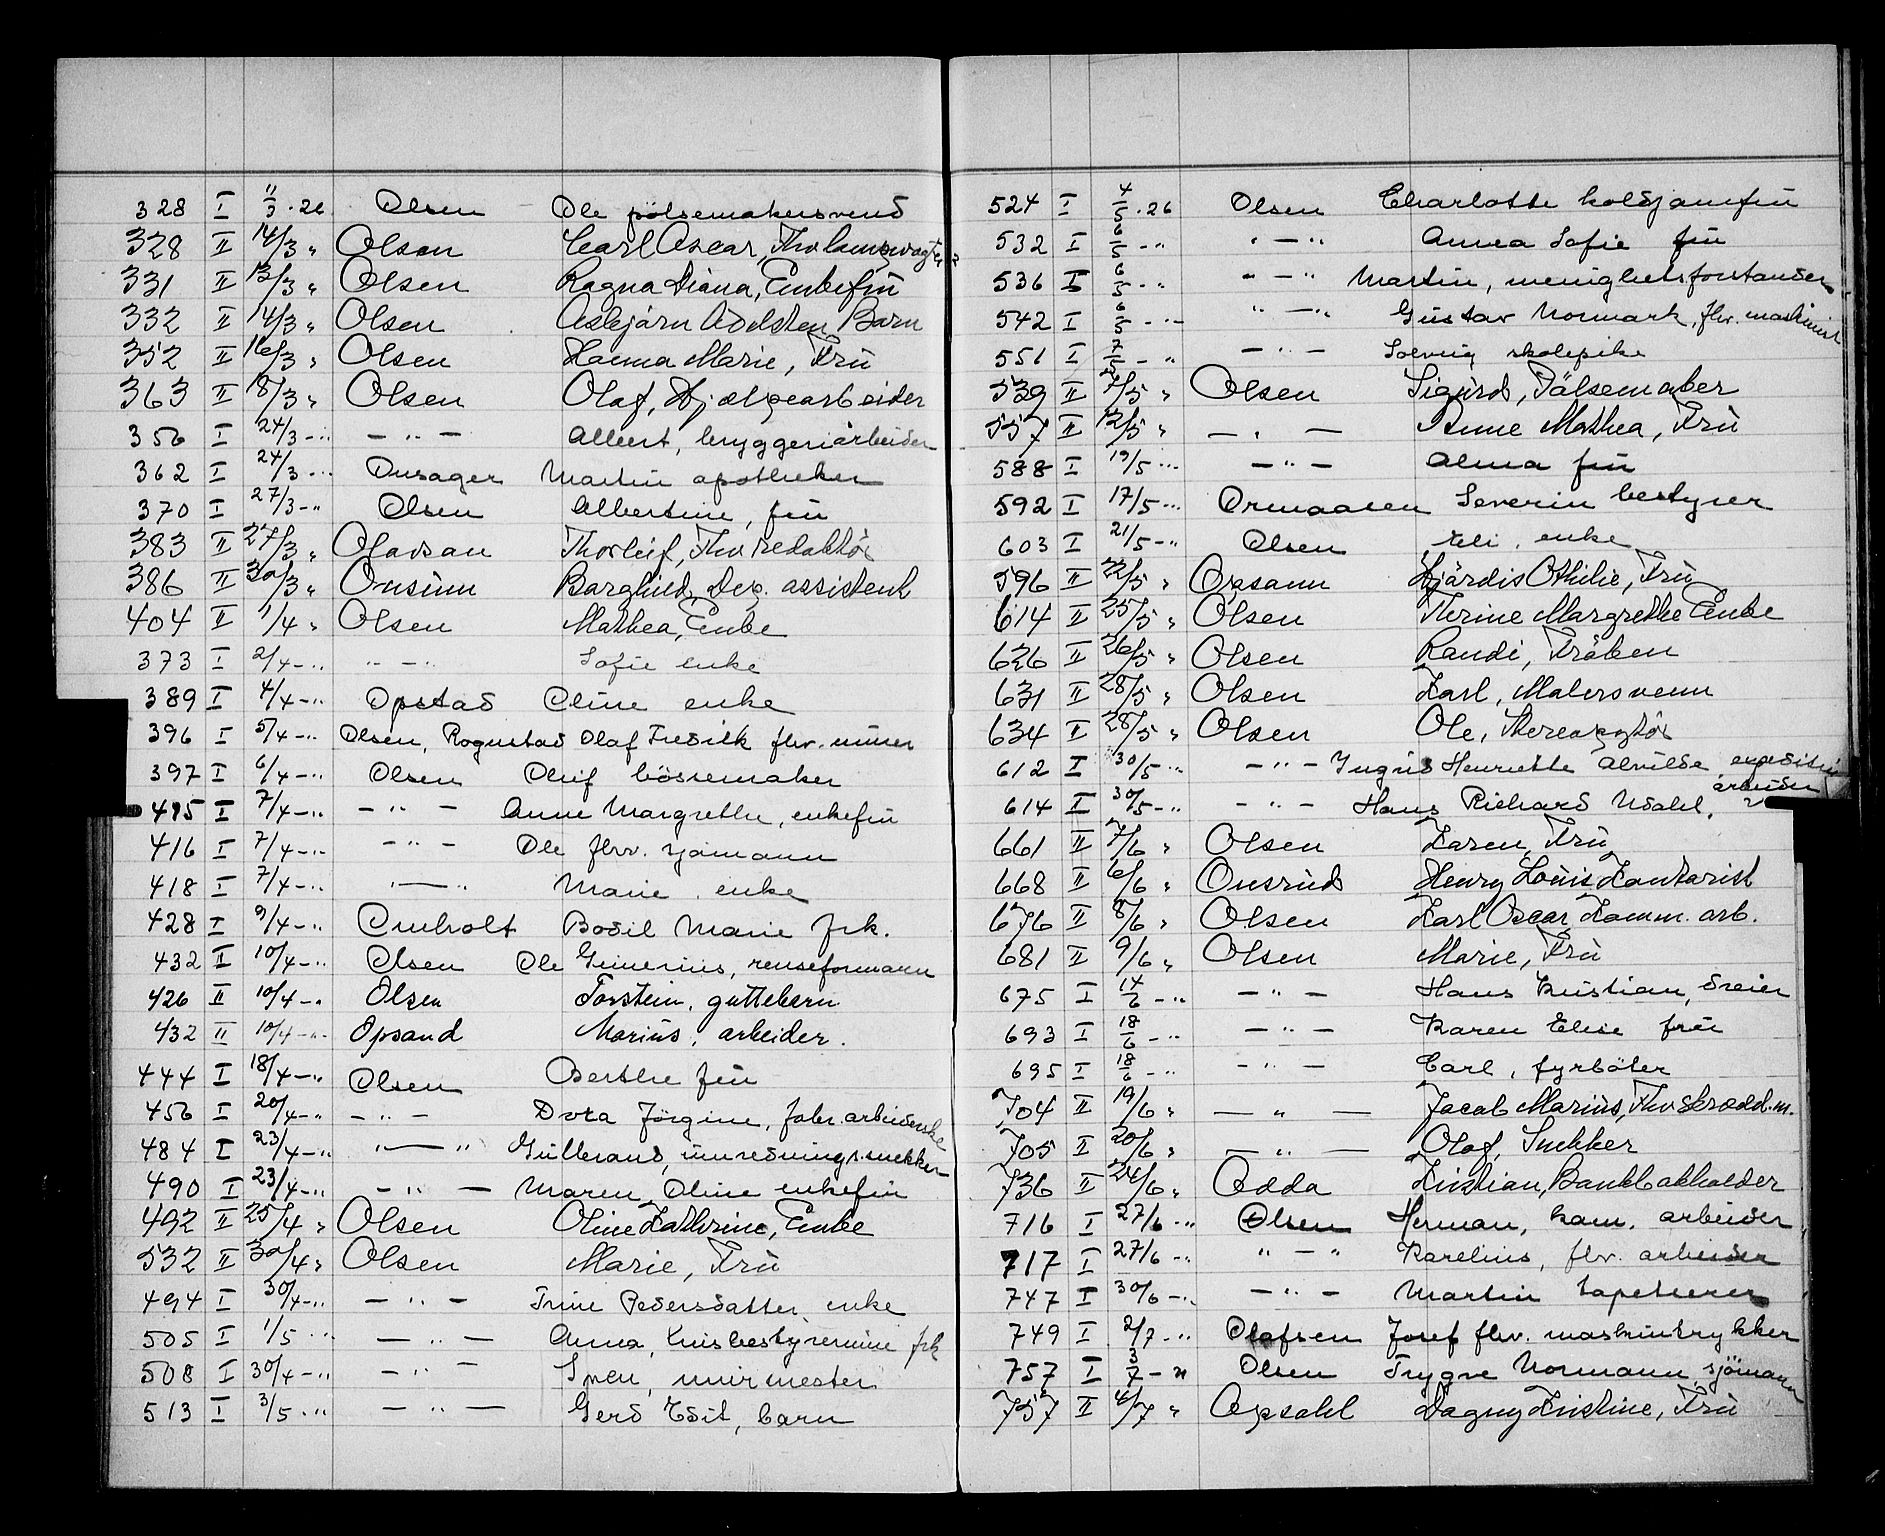 328 I 11/3 . 26 Olsen Ole pölsemakersvend
328 II 14/3 " Olsen Carl Oscar, Fhv
331 II 13/3 " Olsen Ragna Diana, Enkefru
332 II 14/3 " Olsen Asbjørn Adelsten Barn
352 II 16/3 " Olsen Hanna Marie, Fru
363 II 18/3 " Olsen Olaf, Hjælpearbeider
356 I 24/3 - " - " - Albert, bryggeriarbeider
362 I 24/3 - " Onsager Martin apotheker
370 I 27/3 - " Olsen Albertine, fru
383 II 27/3 " Olavsen Thorleif, Fhv redaktör
386 II 30/3 " Onsum Borghild, Dep. assistent
404 II 1/4 " Olsen Mathea, Enke
373 I 2/4 - " " - " Sofie enke
389 I 4/4 - " Opstad Oline enke
396 I 5/4 - " Olsen, Rognstad Olaf Fredrik fhv. murer
397 I 6/4 - " Olsen Oluf bössemaker
415 I 7/4 - " - " - Anne Margrethe, enkefru
416 I 7/4 - " - " - Ole fhv. sjömann
418 I 7/4 - " " - " Marie enke
428 I 9/4 - " Omholt Bodil Marie frk.
432 II 10/4 - " Olsen Ole Geinerius, renseformann
426 II 10/4 - " Olsen Torstein, guttebarn
432 II 10/4 - " Opsand Marius, arbeider.
444 I 18/4 - " Olsen Berthe fru
456 I 20/4 - " - " - Dora Jörgine, fabr. arbeiderske
484 I 23/4 - " " - " Gulbrand, innredningssnekker
490 I 23/4 - " - " - Maren Oline enkefru
492 II 25/4 " Olsen Oline Kathrine, Enke
532 II 30/4 " Olsen Marie, Fru
494 I 30/4 - " - " - Trine Pedersdatter enke
505 I 1/5 - " - " - Anna, husbestyrerinne frk
508 I 30/4 - " - " - Sven, murmester
513 I 3/5 - " - " - Gerd Edit, barn
524 I 4/5 . 26 Olsen Charlotte holdsjamfru
532 I 6/5 - " " - " Anna Sofie fru
536 I 6/5 - " " - " Martin, menighetsforstander
542 I 6/5 - " " - " Gustav Normark, fhv. maskinist
551 I 7/5 - " - " - Solveig skolepike
539 II 7/5 " Olsen Sigurd, Pölsemaker
557 II 12/5 " - " - Anne Mathea, Fru
588 I 19/5 - " - " - Alma fru
592 I 17/5 - " Ormaasen Severin bestyrer
603 I 21/5 - " Olsen Eli, enke
596 II 22/5 " Opsann Hjördis Othilie, Fru
614 II 25/5 " Olsen Therine Margrethe Enke
626 II 26/5 " Olsen Randi, Fröken
631 II 28/5 " Olsen Karl, Malersvenn
634 II 28/5 " Olsen Ole, Stereopytör
612 I 30/5 - " - " - Ingrid Henriette Alvilde expeditrice
614 I 30/5 - " - " - Hans Richard Udahl, arbeider
661 II 7/6 " Olsen Karen, Fru
668 II 6/6 " Onsrud Henry Louis Kontorist
676 II 8/6 " Olsen Karl Oscar Komm. arb.
681 II 9/6 " Olsen Marie, Fru
675 I 14/6 - " - " - Hans Kristian, dreier
693 I 18/6 - " - " - Karen Elise fru
695 I 18/6 - " - " - Carl, fyrböter
704 II 19/6 " - " - Jacob Marius, Fhv skrædd.m.
705 II 20/6 " - " - Olaf, Snekker
736 II 24/6 " Odda Kristian, Bankbokholder
716 I 27/6 - " Olsen Herman, kom. arbeider
717 I 27/6 - " " - " Karelius, fhv. arbeider
747 I 30/6 - " - " - Martin tapetserer
749 I 2/7 - " Olafsen Josef fhv. maskintrykker
757 I 3/7 - " Olsen Trygve Normann, sjömann
757 II 4/7 " Opsahl Dagny Kristine, Fru